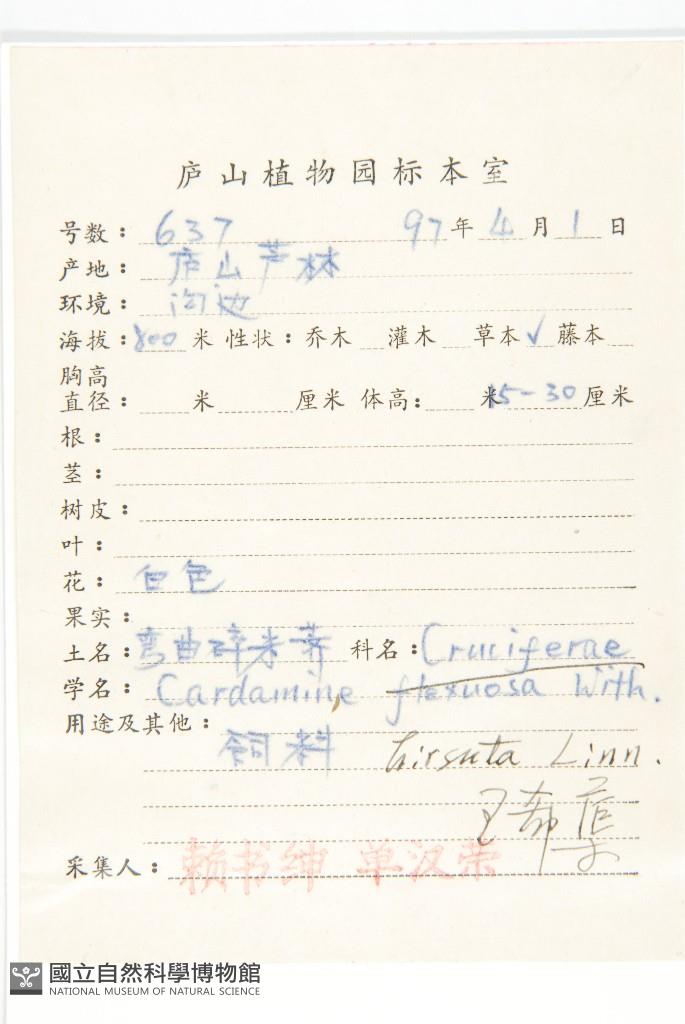 庐山植物园标本室
号数: 637 97年4月1日
产地: 庐山芦林
环境: 沟边
海拔: 800米 性状: 乔木 灌木 草本✓ 藤本
胸高
直径: 米 厘米 体高: 米15-30厘米
根:
茎:
树皮:
叶:
花: 白色
果实:
土名: 弯曲碎米荠 科名: Cruciferae
学名: Cardamine flexuosa With.
用途及其他:
饲料 hirsuta Linn.
采集人: 赖书绅 单汉荣
國立自然科學博物館
NATIONAL MUSEUM OF NATURAL SCIENCE